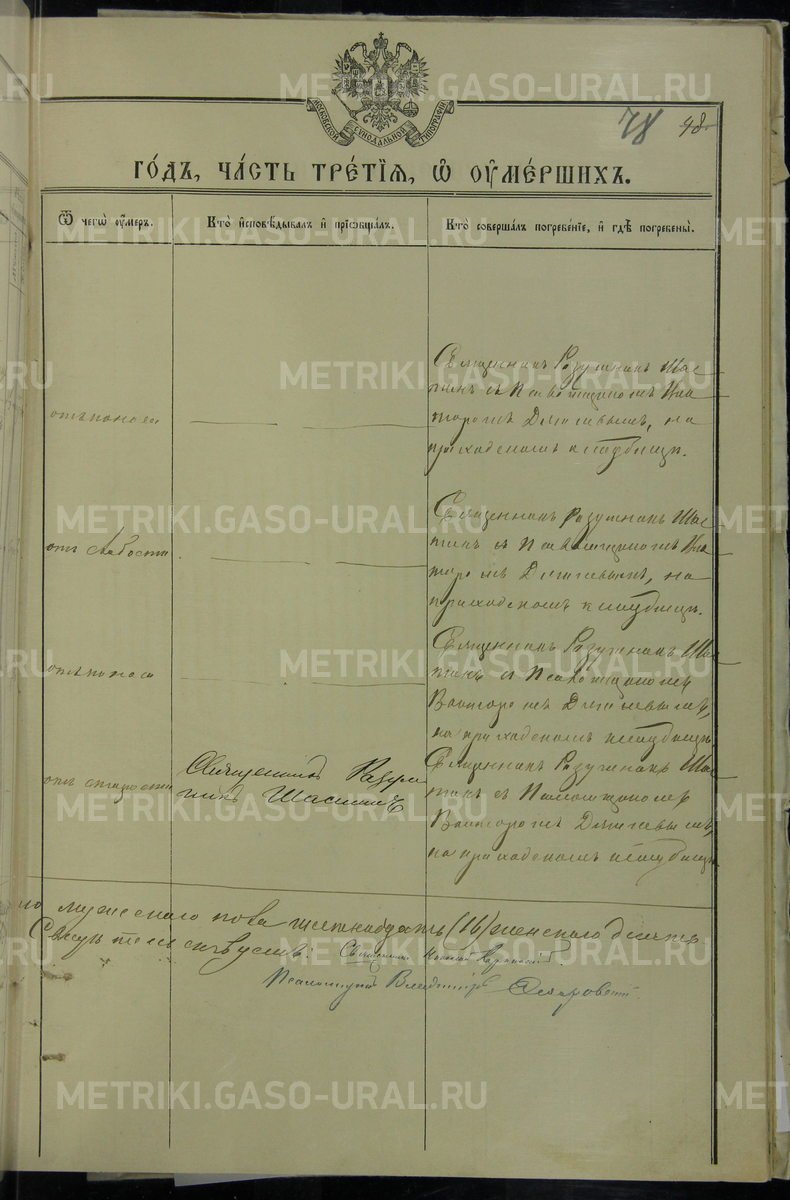 METRIKI.GASO-URAL.RU
МОСКОВСКОЙ СѴНОДАЛЬНОЙ ТИПОГРАФІИ
78 48
ГО́ДЪ, ЧА́СТЬ ТРЕ́ТІѦ, Ѽ ОУ҆МЕ́РШИХЪ.
Ѿ чегѡ̀ оу҆́меръ.
Кто̀ и҆сповѣ́дывалъ и҆ прїѡбща́лъ.
Кто̀ соверша́лъ погребе́нїе, и҆ гдѣ̀ погребены̀.
отъ поноса
Священникъ Разумникъ Шас
тинъ съ Псаломщикомъ
на
приходскомъ кладбищѣ.
отъ слабости
Священникъ Разумникъ Шас
тинъ съ Псаломщикомъ
на
приходскомъ кладбищѣ.
отъ поноса
Священникъ Разумникъ Шас
тинъ съ Псаломщикомъ
Викторомъ
на приходскомъ кладбищѣ
отъ старости
Священникъ Разум
никъ Шастинъ
Священникъ Разумникъ Шас
тинъ съ Псаломщикомъ
Викторомъ
на приходскомъ кладбищѣ
мужескаго пола шестнадцать (16) женскаго
Священникъ
Псаломщикъ Владиміръ